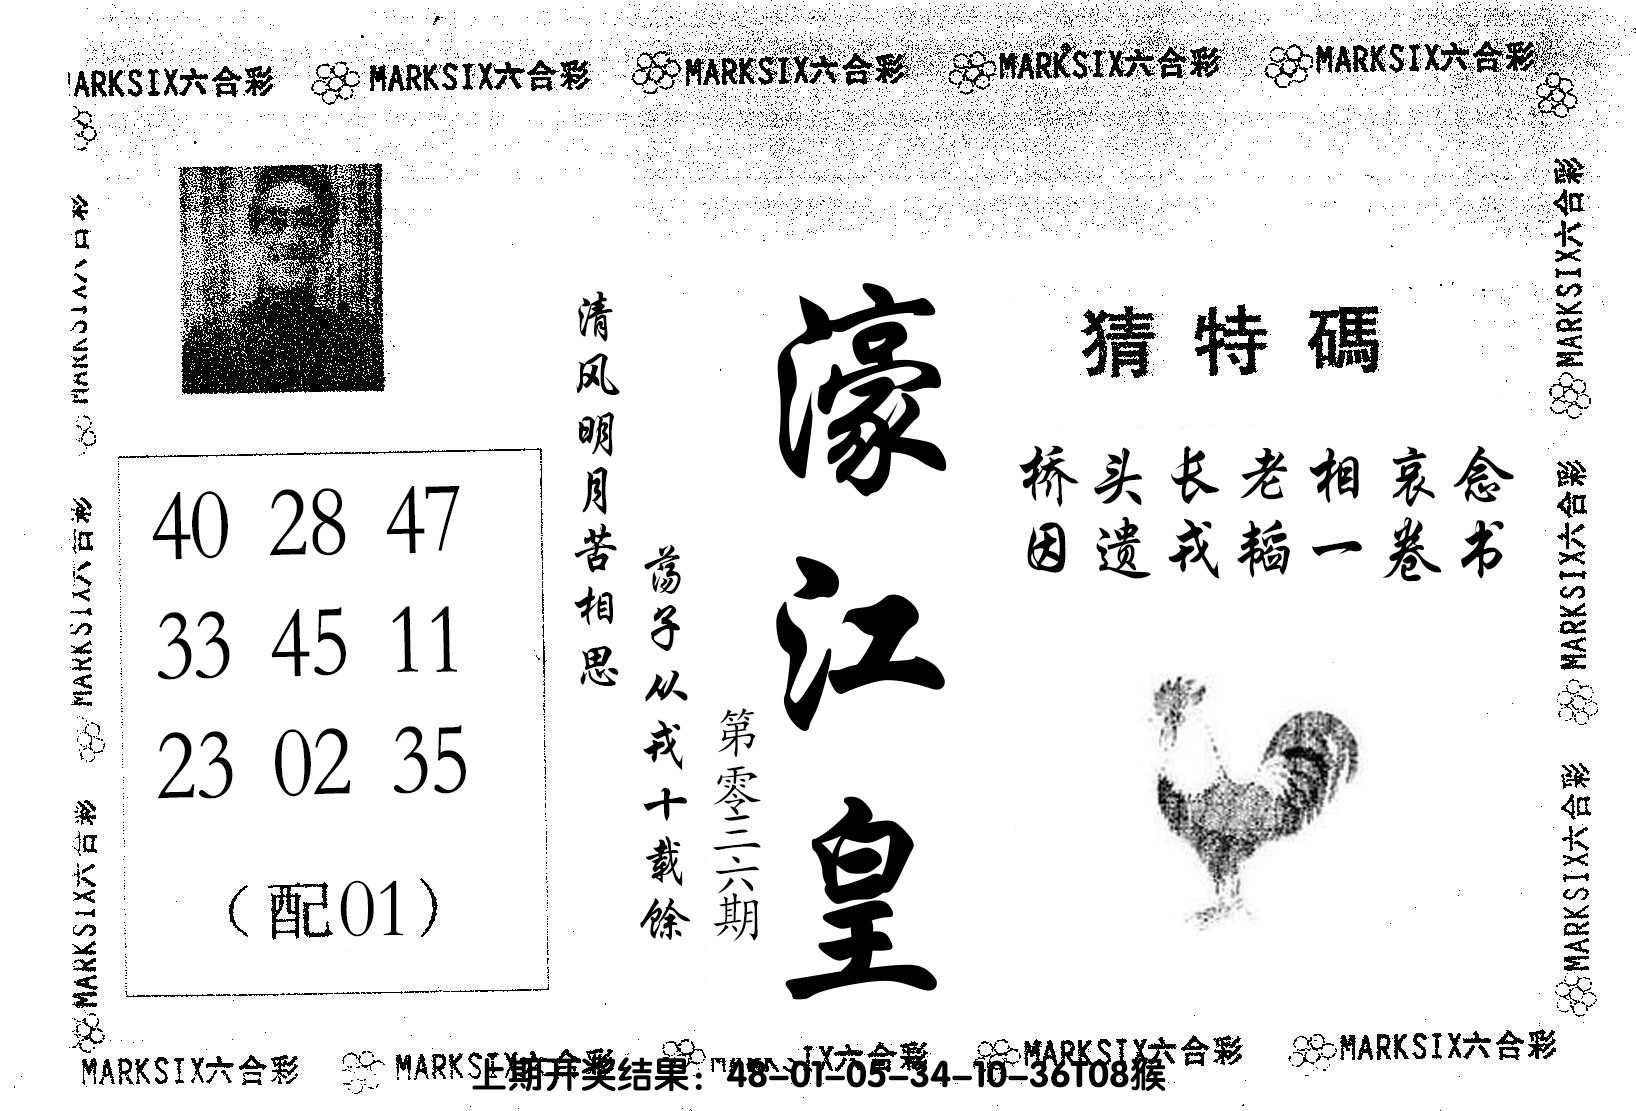 MARKSIX六合彩 MARKSIX六合彩 MARKSIX六合彩 MARKSIX六合彩 MARKSIX六合彩
猜特碼
桥头长老相哀念
因遗戎韬一卷书
濠江皇
第零三六期
清风明月苦相思
荡子从戎十载馀
40 28 47
33 45 11
23 02 35
（配01）
MARKSIX六合彩
MARKSIX六合彩
MARKSIX六合彩
MARKSIX六合彩
MARKSIX六合彩
MARKSIX六合彩
MARKSIX六合彩 MARKSIX六合彩 IX六合彩 MARKSIX六合彩 MARKSIX六合彩
上期开奖结果：48-01-05-34-10-36T08猴